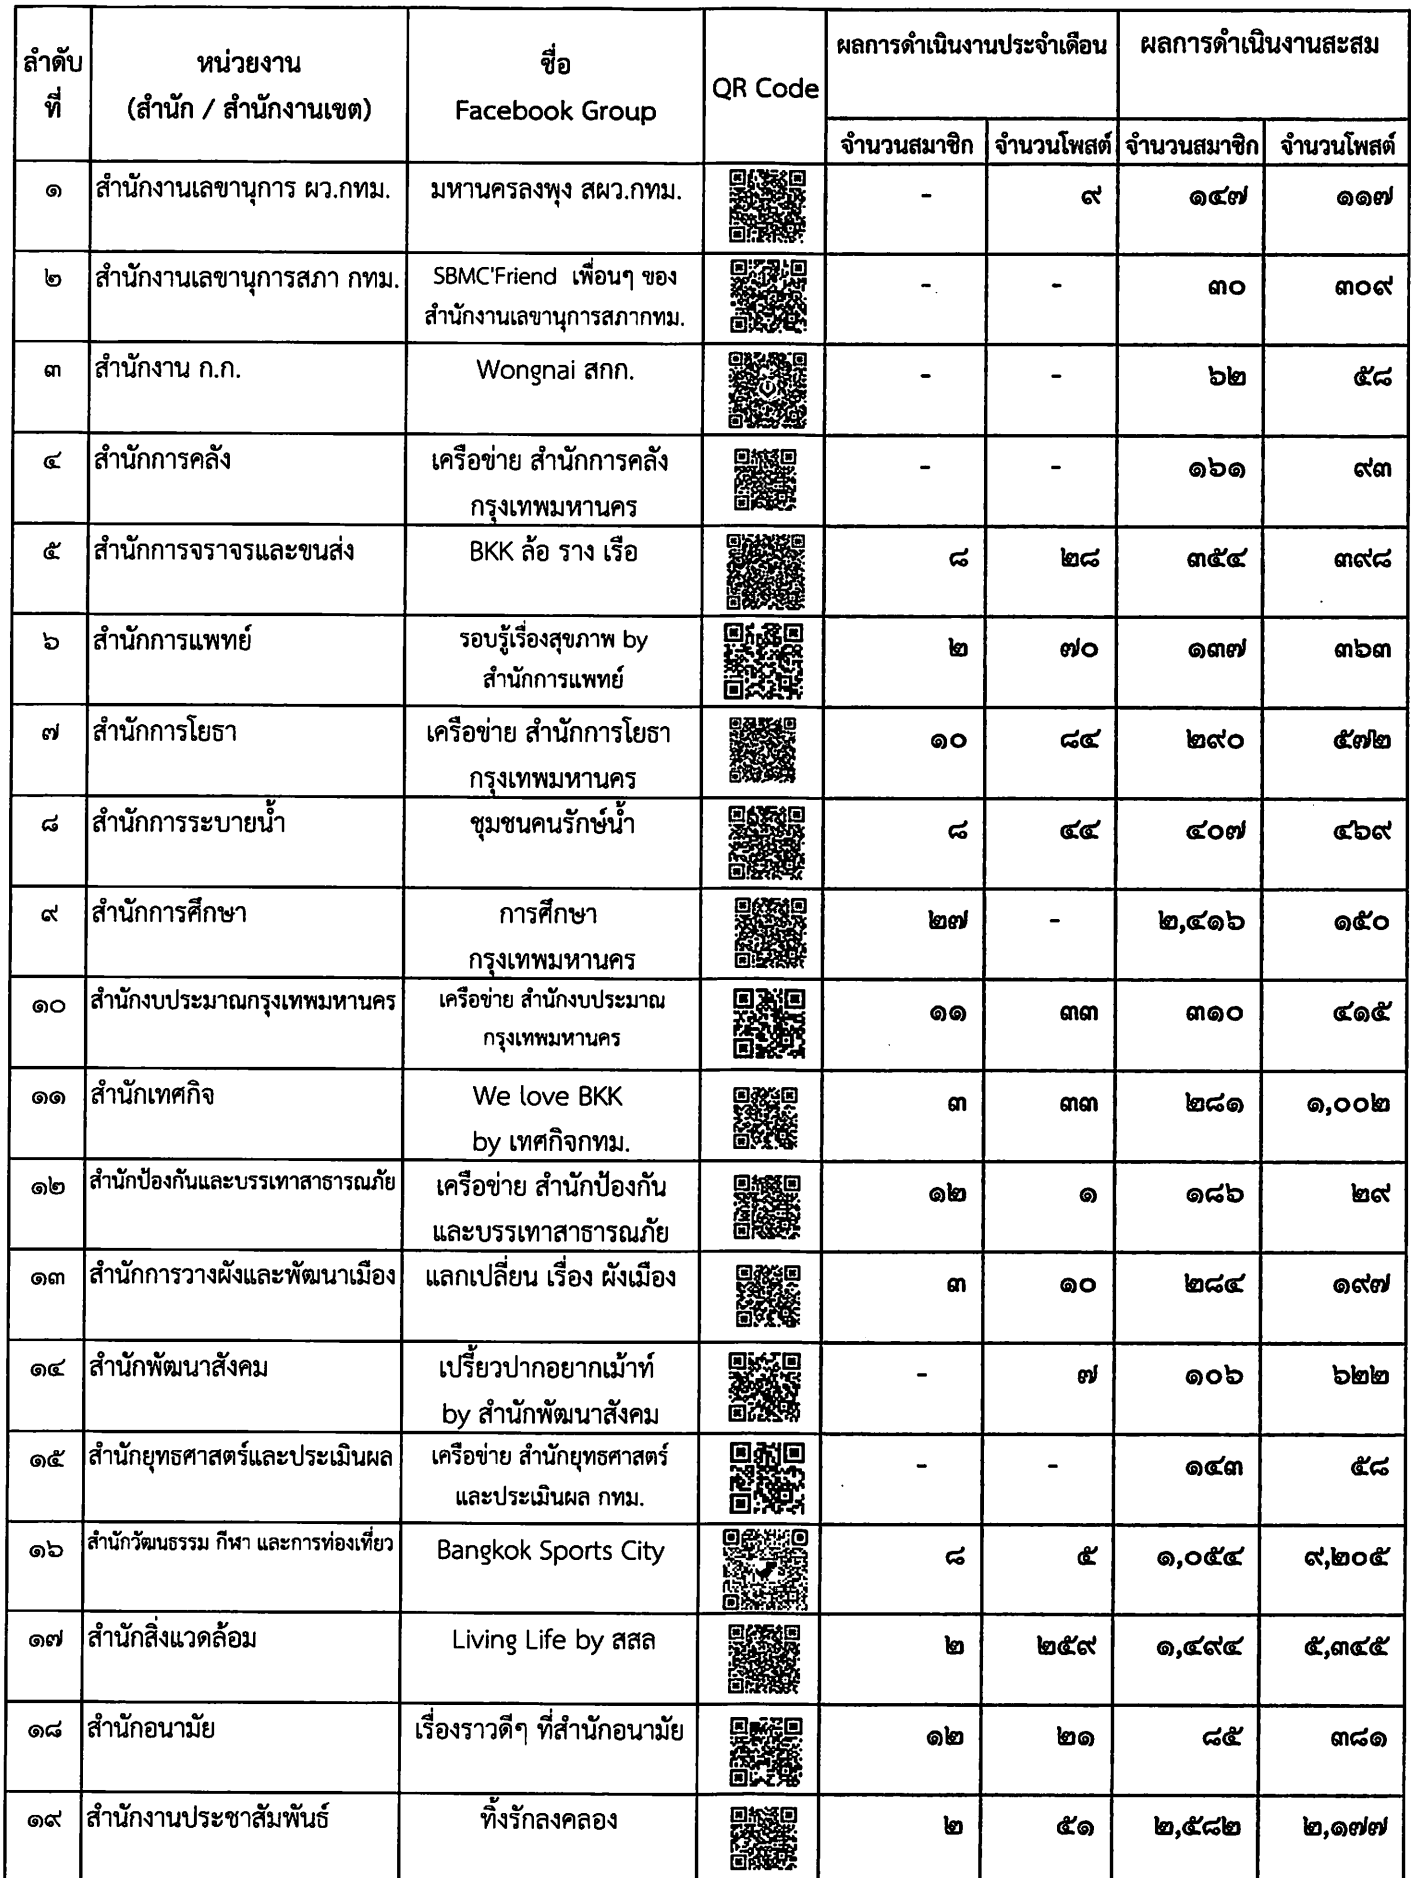 ลำดับที่ หน่วยงาน (สำนัก / สำนักงานเขต) ชื่อ Facebook Group QR Code ผลการดำเนินงานประจำเดือน ผลการดำเนินงานสะสม
จำนวนสมาชิก จำนวนโพสต์ จำนวนสมาชิก จำนวนโพสต์
๑ สำนักงานเลขานุการ ผว.กทม. มหานครลงพุง สผว.กทม. - ๙ ๑๔๗ ๑๑๗
๒ สำนักงานเลขานุการสภา กทม. SBMC'Friend เพื่อนๆ ของ - - ๓๐ ๓๐๙
สำนักงานเลขานุการสภากทม.
๓ สำนักงาน ก.ก. Wongnai สกก. - - ๖๒ ๕๘
๔ สำนักการคลัง เครือข่าย สำนักการคลัง - - ๑๖๑ ๙๓
กรุงเทพมหานคร
๕ สำนักการจราจรและขนส่ง BKK ล้อ ราง เรือ ๘ ๒๘ ๓๕๔ ๓๙๘
๖ สำนักการแพทย์ รอบรู้เรื่องสุขภาพ by ๒ ๗๐ ๑๓๗ ๓๖๓
สำนักการแพทย์
๗ สำนักการโยธา เครือข่าย สำนักการโยธา ๑๐ ๘๔ ๒๙๐ ๕๗๒
กรุงเทพมหานคร
๘ สำนักการระบายน้ำ ชุมชนคนรักษ์น้ำ ๘ ๔๔ ๔๐๗ ๔๖๙
๙ สำนักการศึกษา การศึกษา ๒๗ - ๒,๔๑๖ ๑๕๐
กรุงเทพมหานคร
๑๐ สำนักงบประมาณกรุงเทพมหานคร เครือข่าย สำนักงบประมาณ ๑๑ ๓๓ ๓๑๐ ๔๑๕
กรุงเทพมหานคร
๑๑ สำนักเทศกิจ We love BKK ๓ ๓๓ ๒๘๑ ๑,๐๐๒
by เทศกิจกทม.
๑๒ สำนักป้องกันและบรรเทาสาธารณภัย เครือข่าย สำนักป้องกัน ๑๒ ๑ ๑๘๖ ๒๙
และบรรเทาสาธารณภัย
๑๓ สำนักการวางผังและพัฒนาเมือง แลกเปลี่ยน เรื่อง ผังเมือง ๓ ๑๐ ๒๘๔ ๑๙๗
๑๔ สำนักพัฒนาสังคม เปรี้ยวปากอยากเม้าท์ - ๗ ๑๐๖ ๖๒๒
by สำนักพัฒนาสังคม
๑๕ สำนักยุทธศาสตร์และประเมินผล เครือข่าย สำนักยุทธศาสตร์ - - ๑๔๓ ๕๘
และประเมินผล กทม.
๑๖ สำนักวัฒนธรรม กีฬา และการท่องเที่ยว Bangkok Sports City ๘ ๕ ๑,๐๕๔ ๙,๒๐๕
๑๗ สำนักสิ่งแวดล้อม Living Life by สสล ๒ ๒๕๙ ๑,๔๙๔ ๕,๓๔๕
๑๘ สำนักอนามัย เรื่องราวดีๆ ที่สำนักอนามัย ๑๒ ๒๑ ๘๕ ๓๘๑
๑๙ สำนักงานประชาสัมพันธ์ ทิ้งรักลงคลอง ๒ ๕๑ ๒,๕๘๒ ๒,๑๗๗